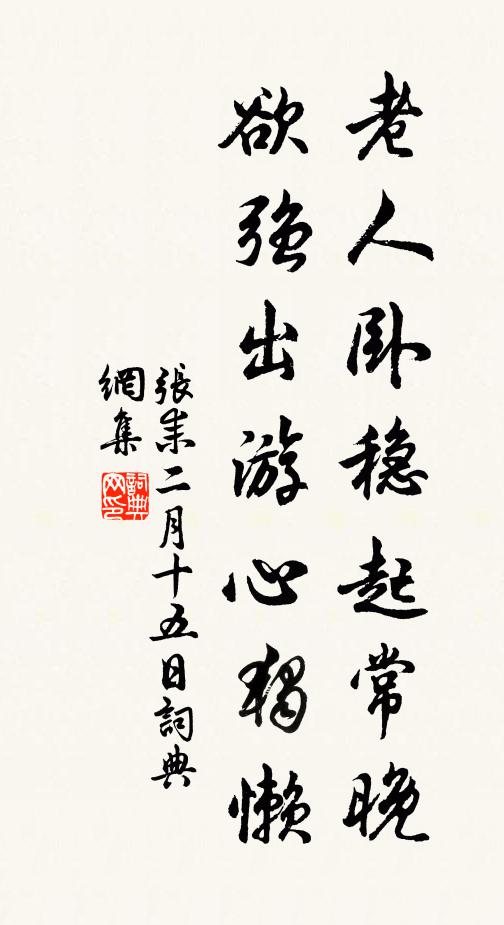 老人卧稳起常晚
欲强出游心独懒
張耒二月十五日詞典
網集
詞典
网印